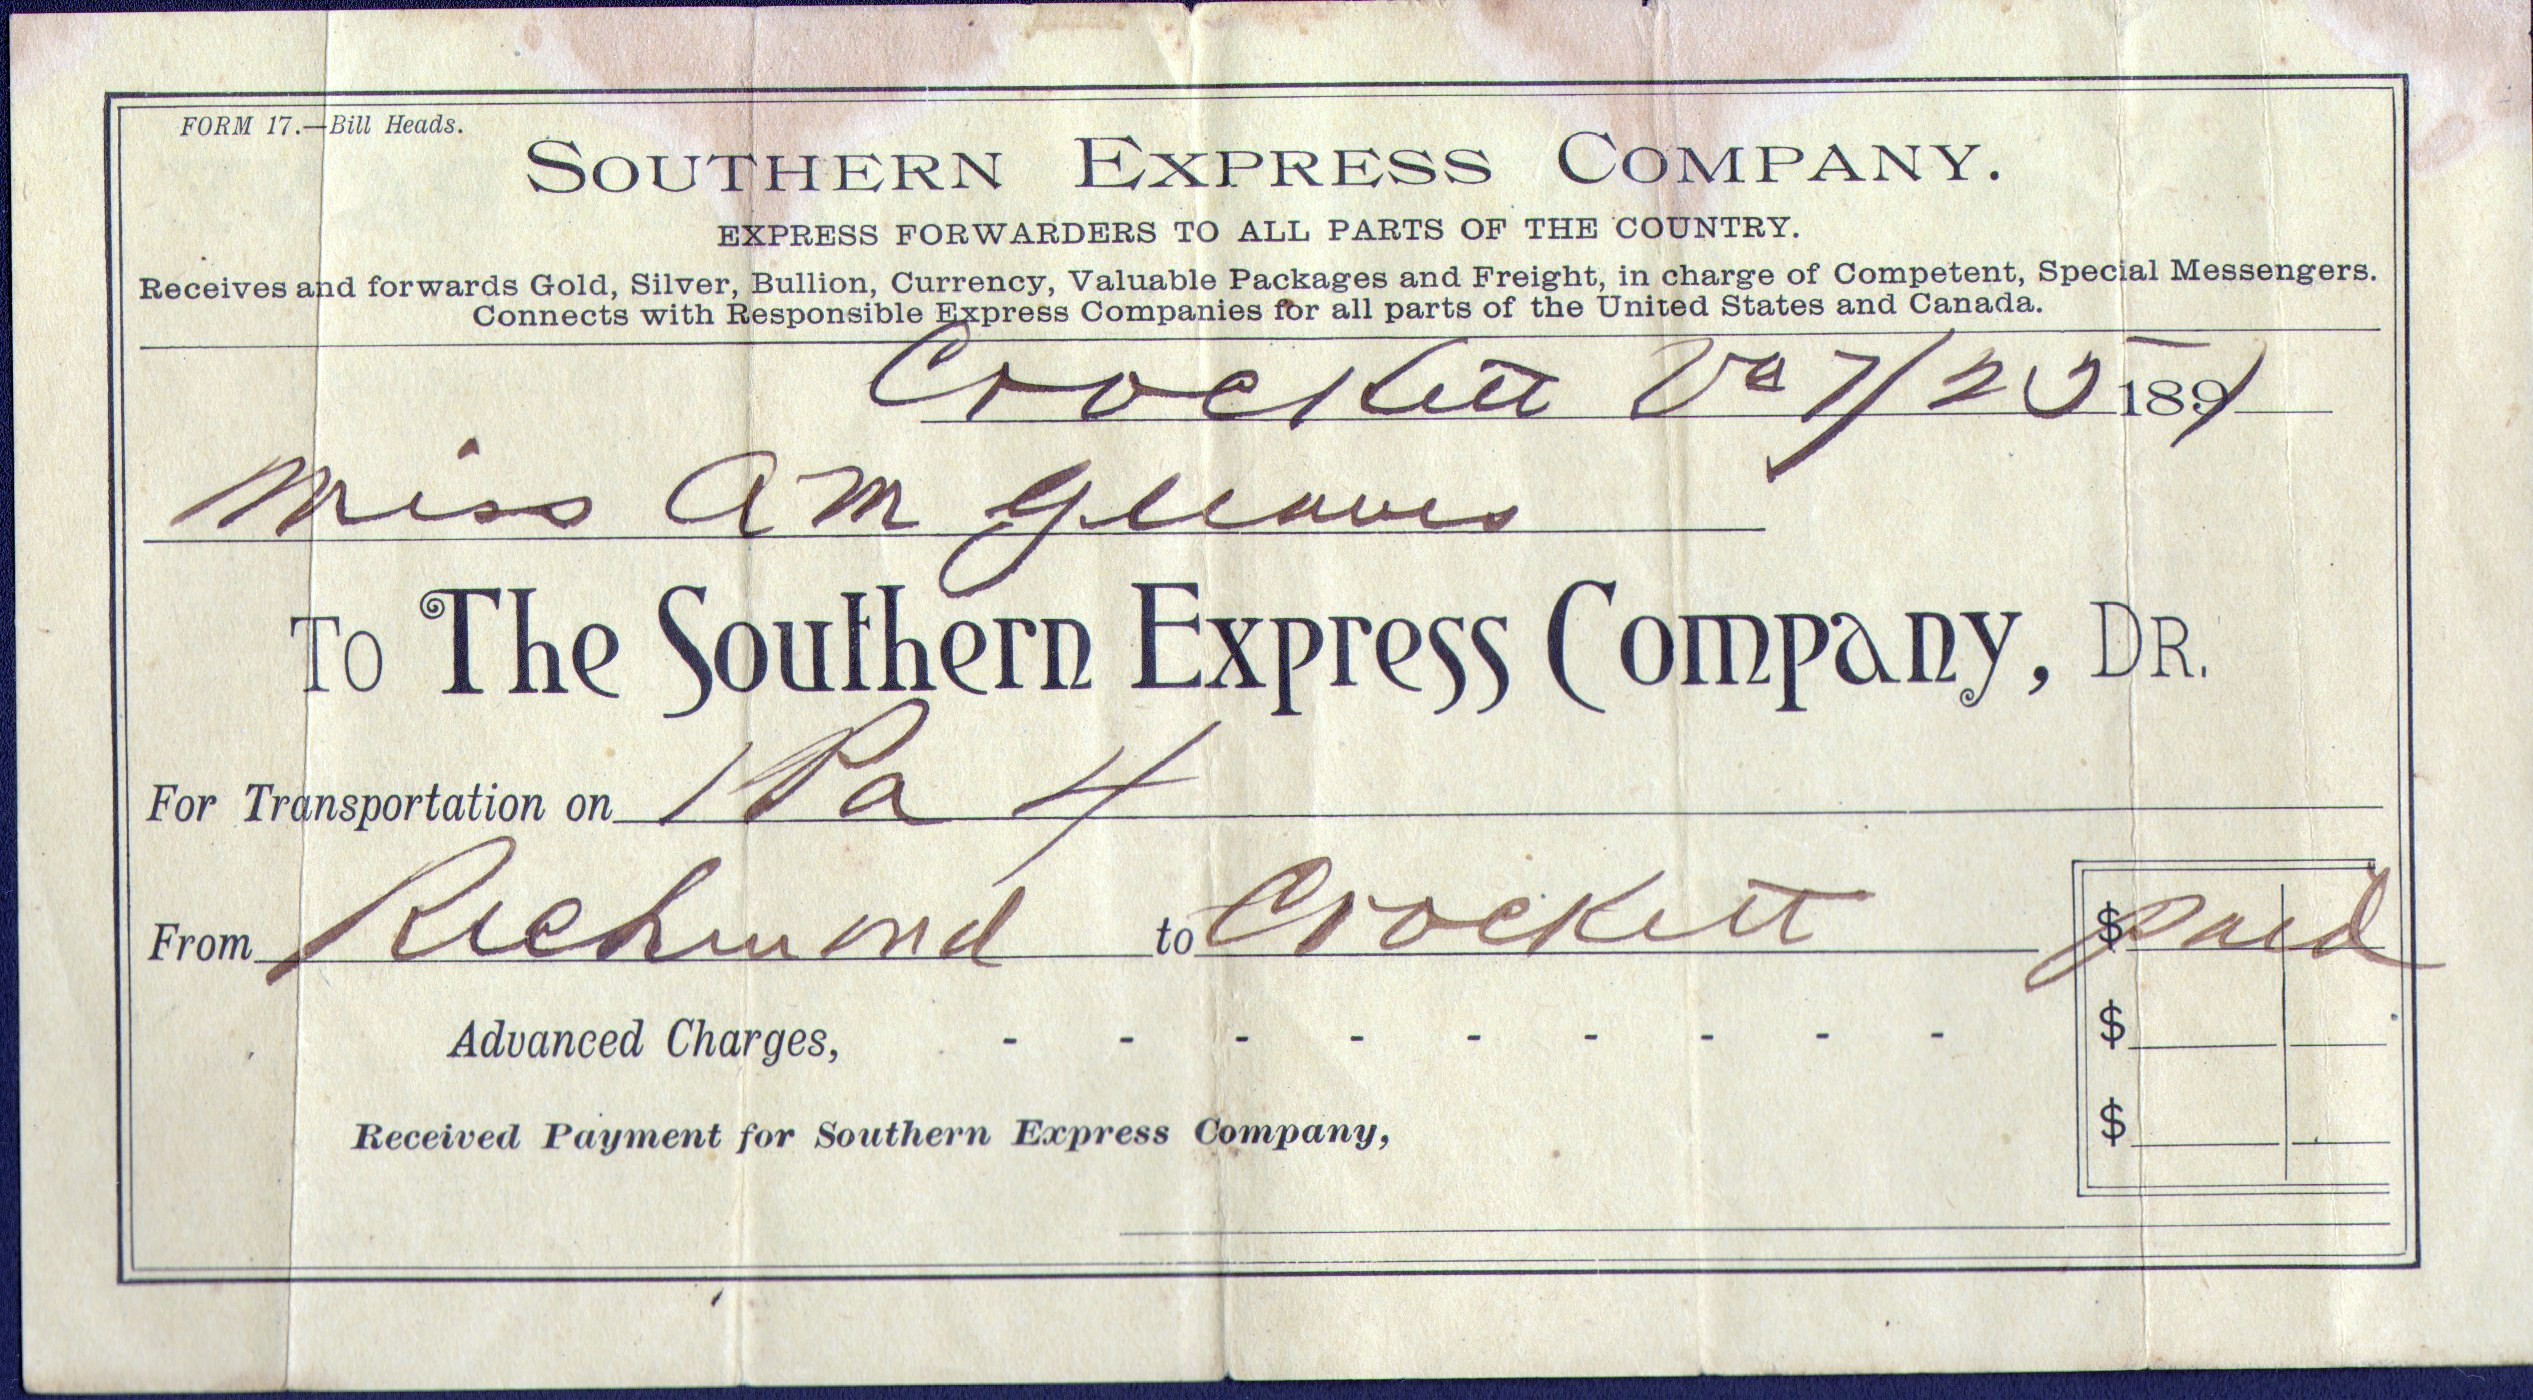 FORM 17.—Bill Heads.
SOUTHERN EXPRESS COMPANY.
EXPRESS FORWARDERS TO ALL PARTS OF THE COUNTRY.
Receives and forwards Gold, Silver, Bullion, Currency, Valuable Packages and Freight, in charge of Competent, Special Messengers.
Connects with Responsible Express Companies for all parts of the United States and Canada.
Crockett Va 7/25 1891
Miss A M Gleaves
TO The Southern Express Company, DR.
For Transportation on 1 Pa 4
From Richmond to Crockett $ paid
Advanced Charges, - - - - - - - - - $
$
Received Payment for Southern Express Company,